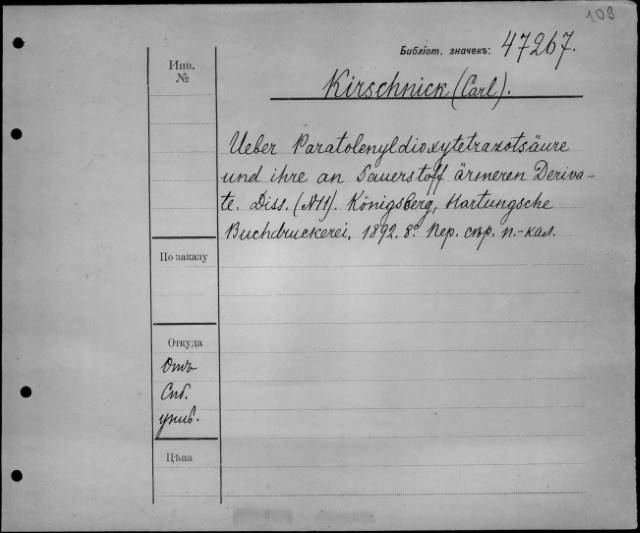 109
Библіот. значекъ: 47267.
Инв.
№
Kirschnick (Carl).
Ueber Paratolenyldioxytetrazotsäure
und ihre an Sauerstoff ärmeren Deriva-
te. Diss. (AH). Königsberg, Hartungsche
Buchdruckerei, 1892. 8º. Пер. сѣр. п.-кал.
По заказу
Откуда
Отъ
Спб.
унив.
Цѣна